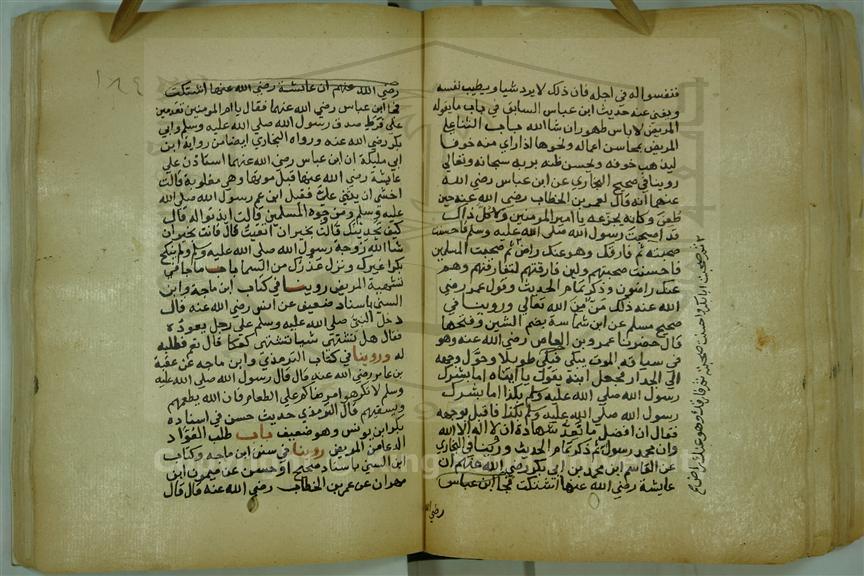 فنفسوا له في اجله فان ذلك لا يرد شيا ويطيب نفسه
ويغني عنه حديث ابن عباس السابق في باب ما يقوله
المريض لا باس طهور ان شا الله باب الثنا علي
المريض بمحاسن اعماله ونحوها اذا راي منه خوفا
ليذهب خوفه ويحسن ظنه بربه سبحانه وتعالي
روينا في صحيح البخاري عن ابن عباس رضي الله
عنهما انه قال لعمر بن الخطاب رضي الله عنه حين
طعن وكانه يجزعه يا امير المومنين ولا كل ذاك
قد صحبت رسول الله صلي الله عليه وسلم فاحسنت
صحبته ثم فارقك وهو عنك راض ثم صحبت المسلمين
فاحسنت صحبتهم ولين فارقتهم لتفارقنهم وهم
عنك راضون وذكر تمام الحديث وقول عمر رضي
الله عنه ذلك من من الله تعالي وروينا في
صحيح مسلم عن ابن شماسة بضم الشين وفتحها
قال حضرنا عمرو بن العاص رضي الله عنه وهو
في سياقة الموت يبكي فبكي طويلا وحول وجهه
الي الجدار فجعل ابنه يقول يا ابتاه اما بشرك
رسول الله صلي الله عليه وسلم بكذا اما بشرك
رسول الله صلي الله عليه وسلم بكذا فاقبل بوجهه
فقال ان افضل ما نعد شهادة ان لا اله الا الله
وان محمد رسول ثم ذكر تمام الحديث وروينا في البخاري
عن القاسم ابن محمد بن ابي بكر رضي الله عنهم ان
عايشة رضي الله عنها اشتكت فجا ابن عباس
رضي الله
ثم صحبت ابا بكر فاحسنت صحبته ثم فارقك وهو عنك راض
١٨٤
رضي الله عنهم ان عايشة رضي الله عنها اشتكت
فجا ابن عباس رضي الله عنهما فقال يا ام المومنين تقدمين
علي فرط صدق رسول الله صلي الله عليه وسلم وابي
بكر رضي الله عنه ورواه البخاري ايضا من رواية ابن
ابي مليكة ان ابن عباس رضي الله عنهما استاذن علي
عايشة رضي الله عنها قبل موتها وهي مغلوبة قالت
اخشي ان يثني علي فقيل ابن عم رسول الله صلي الله
عليه وسلم ومن وجوه المسلمين قالت ايذنوا له قال
كيف تجدينك قالت بخير ان اتقيت قال فانت بخير ان
شا الله زوجة رسول الله صلي الله عليه وسلم ولم ينكح
بكرا غيرك ونزل عذرك من السما باب ما جا في
تشهية المريض روينا في كتاب ابن ماجة وابن
السني باسناد ضعيف عن انس رضي الله عنه قال
دخل النبي صلي الله عليه وسلم علي رجل يعوده
فقال هل تشتهي شيا تشتهي كعكا قال نعم فطلبه
له وروينا في كتاب الترمذي وابن ماجه عن عقبة
بن عامر رضي الله عنه قال قال رسول الله صلي الله عليه
وسلم لا تكرهوا مرضاكم علي الطعام فان الله يطعمهم
ويسقيهم قال الترمذي حديث حسن في اسناده
بكر ابن يونس وهو ضعيف باب طلب العواد
الدعا من المريض روينا في سنن ابن ماجه وكتاب
ابن السني باسناد صحيح او حسن عن ميمون ابن
مهران عن عمر بن الخطاب رضي الله عنه قال قال